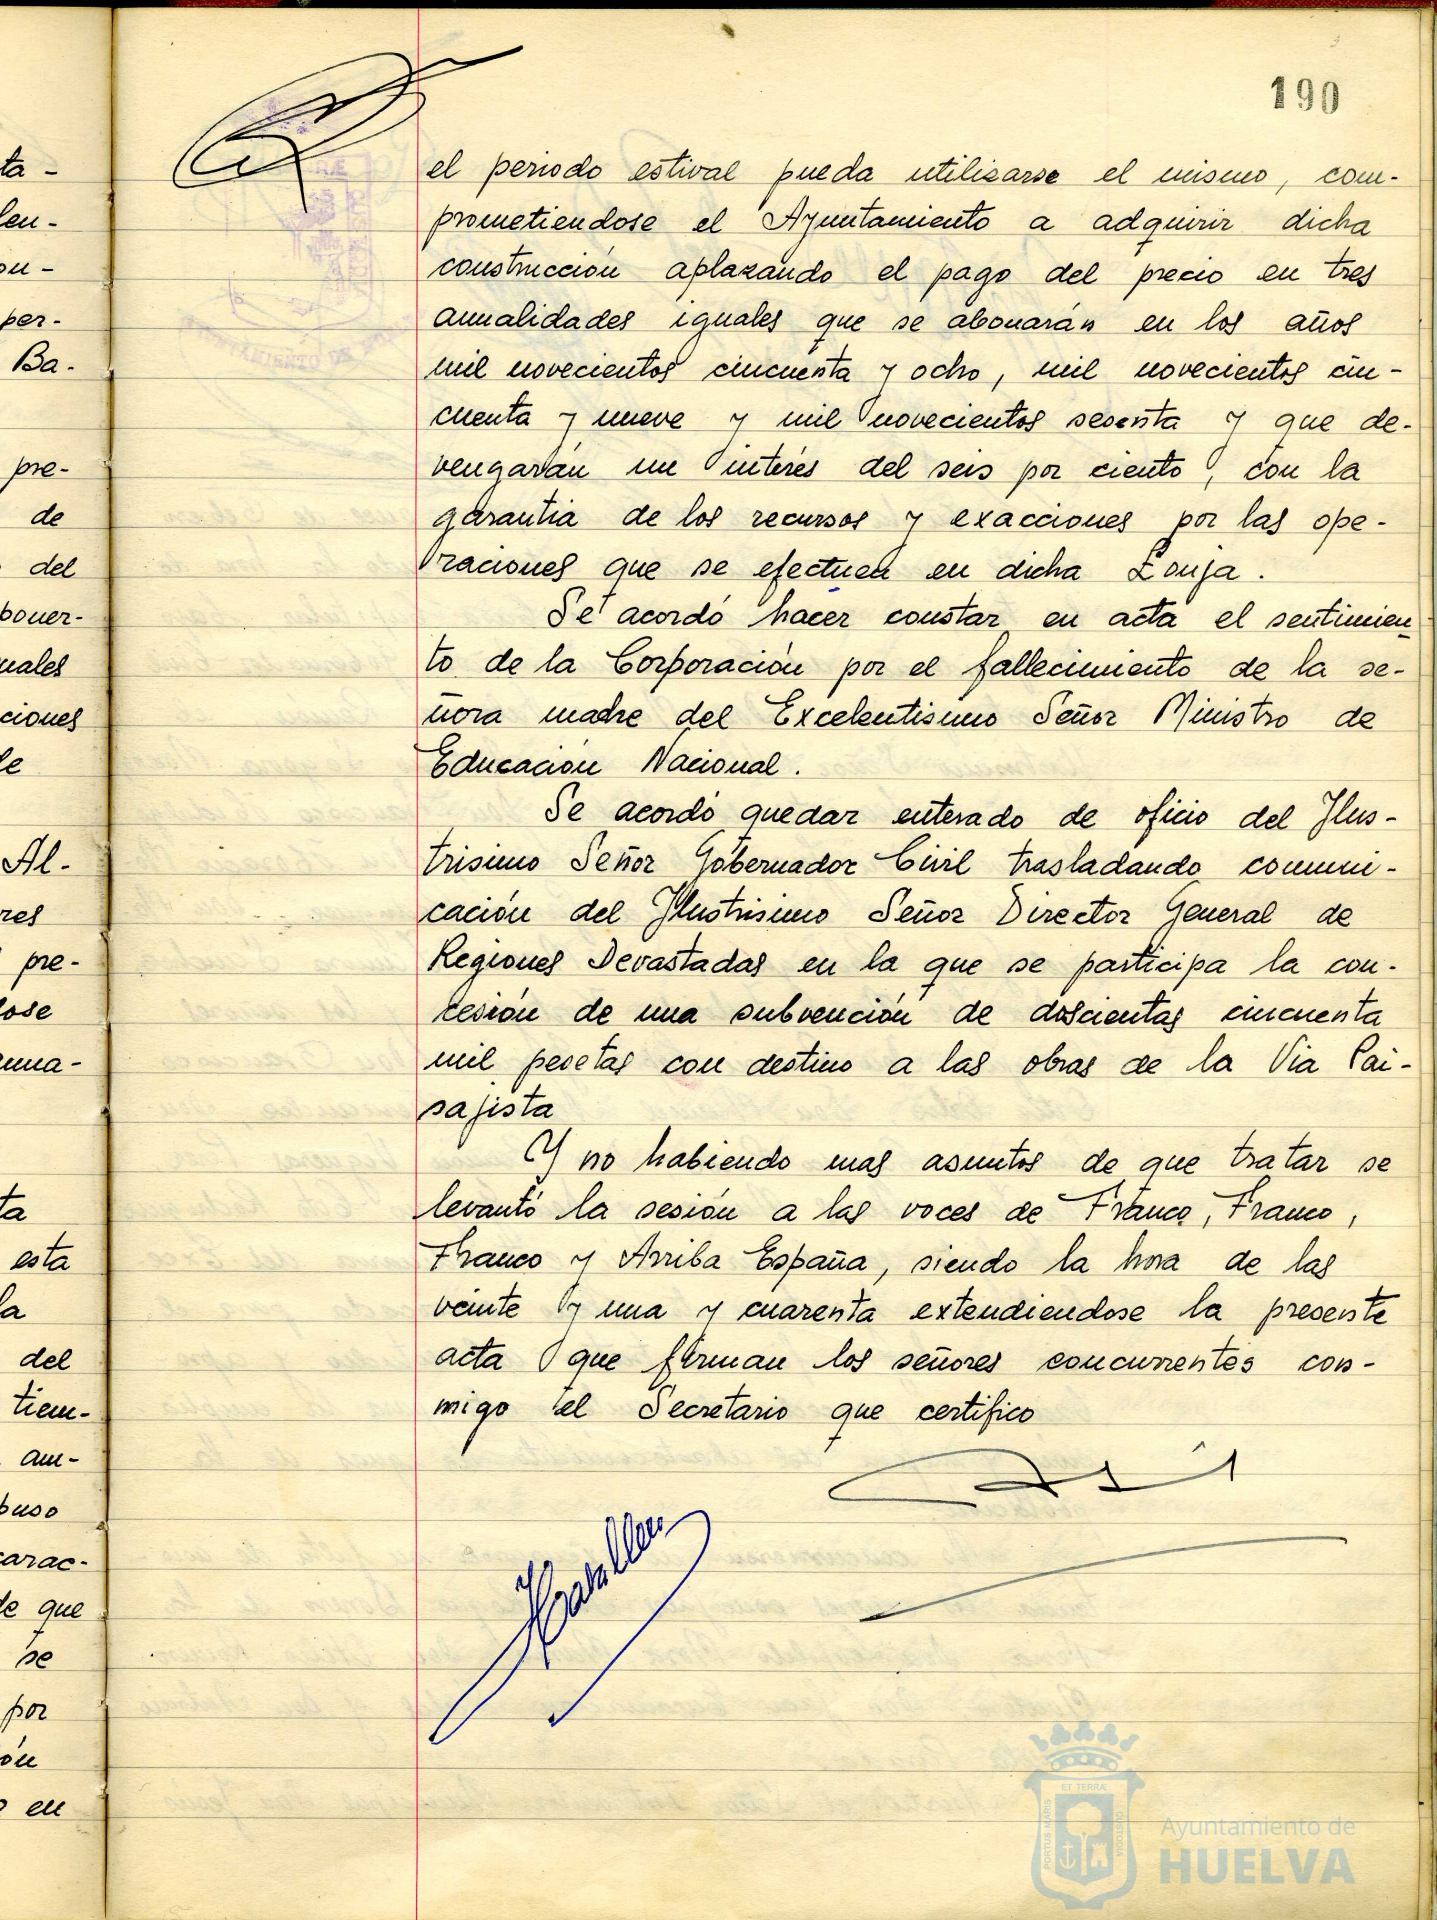 190
ta -
len-
on -
per-
Ba.
pre-
de
del
poner-
uales
ciones
le
Al-
res
pre-
dose
uma-
ta
esta
la
del
tiem-
am-
puso
carac-
de que
se
por
ón
en
el periodo estival pueda utilizarse el mismo, com-
prometiendose el Ayuntamiento a adquirir dicha
construcción aplazando el pago del precio en tres
anualidades iguales que se abonarán en los años
mil novecientos cincuenta y ocho, mil novecientos cin-
cuenta y nueve y mil novecientos sesenta y que de-
vengarán un interés del seis por ciento, con la
garantia de los recursos y exacciones por las ope-
raciones que se efectuen en dicha Lonja.
Se acordó hacer constar en acta el sentimien
to de la Corporación por el fallecimiento de la se-
ñora madre del Excelentisimo Señor Ministro de
Educación Nacional.
Se acordó quedar enterado de oficio del Ilus-
trisimo Señor Gobernador Civil trasladando comuni-
cación del Ilustrisimo Señor Director General de
Regiones Devastadas en la que se participa la con-
cesión de una subvención de doscientas cincuenta
mil pesetas con destino a las obras de la Via Pai-
sajista
Y no habiendo mas asuntos de que tratar se
levantó la sesión a las voces de Franco, Franco,
Franco y Arriba España, siendo la hora de las
veinte y una y cuarenta extendiendose la presente
acta que firman los señores concurrentes con-
migo el Secretario que certifico
PORTUS MARIS
ET TERRÆ
CUSTODIA
Ayuntamiento de
HUELVA